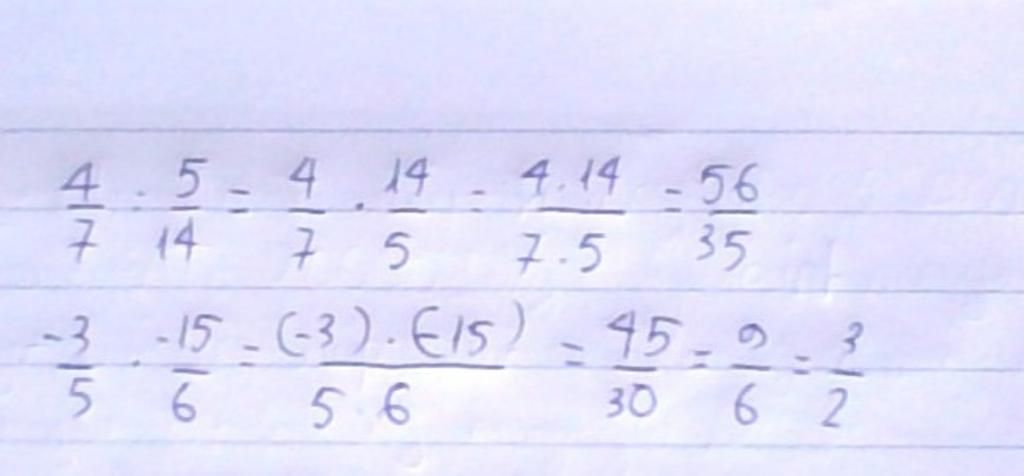 4/7 : 5/14 = 4/7 . 14/5 = 4.14/7.5 = 56/35
-3/5 . -15/6 = (-3).(-15)/5.6 = 45/30 = 9/6 = 3/2